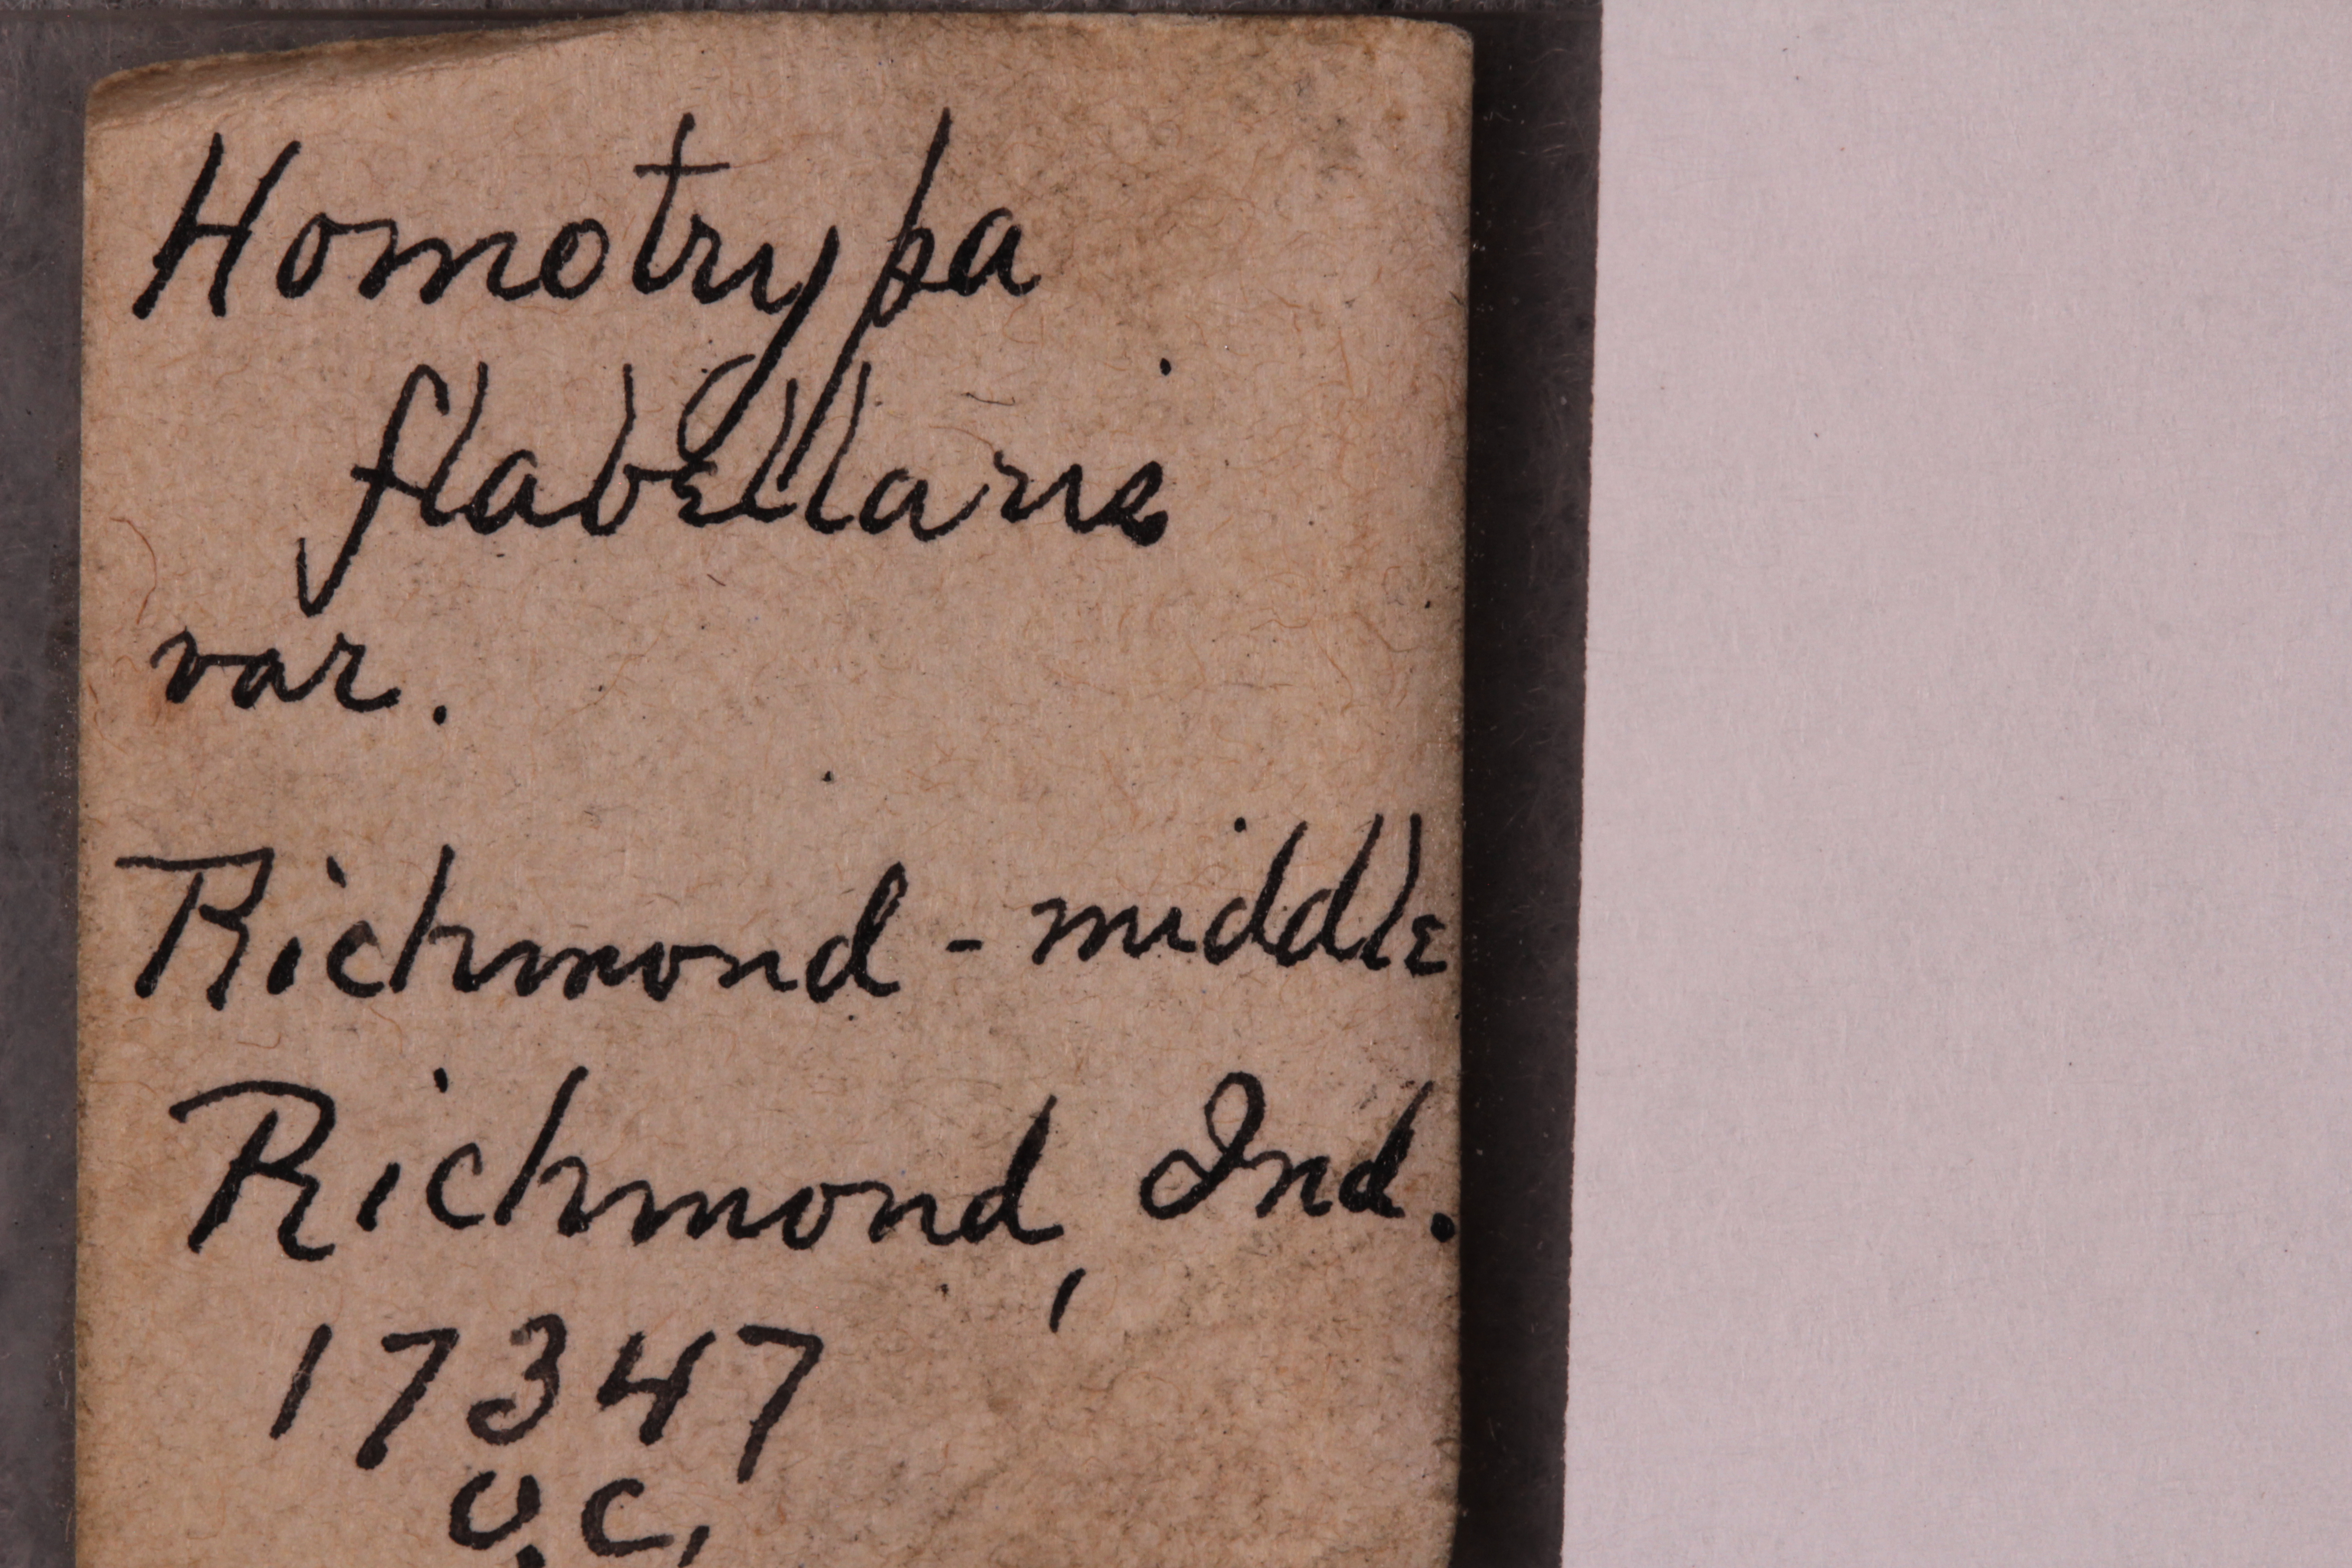 Homotrypa
flabellaris
var.
Richmond - middle
Richmond, Ind.
17347
U.C.